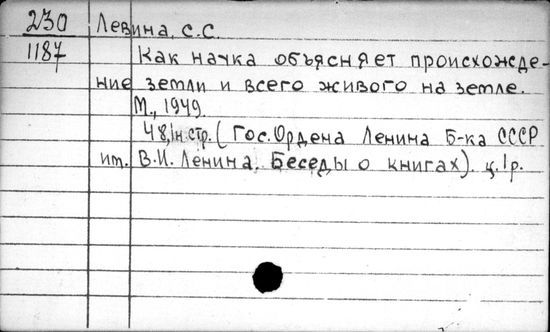 230 Левина, С.С.
1187 Как наука объясняет происхожде-
ние земли и всего живого на земле.
М., 1949.
48,1н.стр. (Гос. Ордена Ленина б-ка СССР
им. В.И. Ленина. Беседы о книгах). ц. 1р.